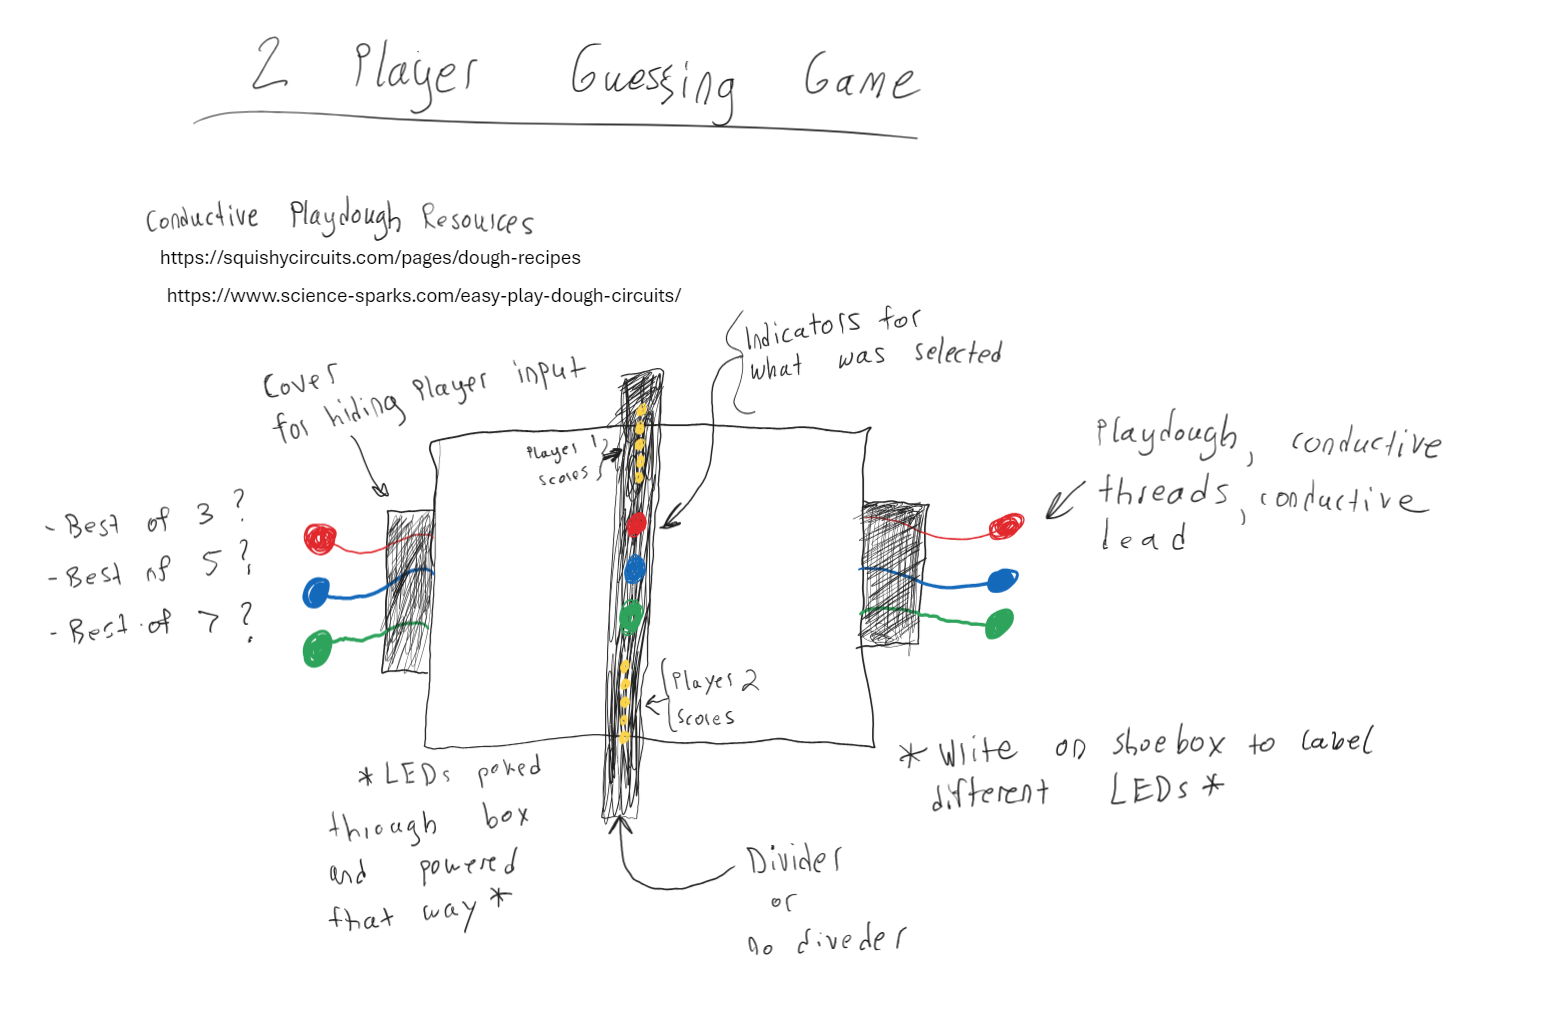 2 Player Guessing Game
Conductive Playdough Resources
https://squishycircuits.com/pages/dough-recipes
https://www.science-sparks.com/easy-play-dough-circuits/
Indicators for
what was selected
Cover
for hiding Player input
Player 1
scores
Playdough, conductive
threads, conductive
lead
- Best of 3 ?
- Best of 5 ?
- Best of 7 ?
Player 2
scores
* LEDs poked
through box
and powered
that way *
* Write on shoebox to label
different LEDs *
Divider
or
no diveder